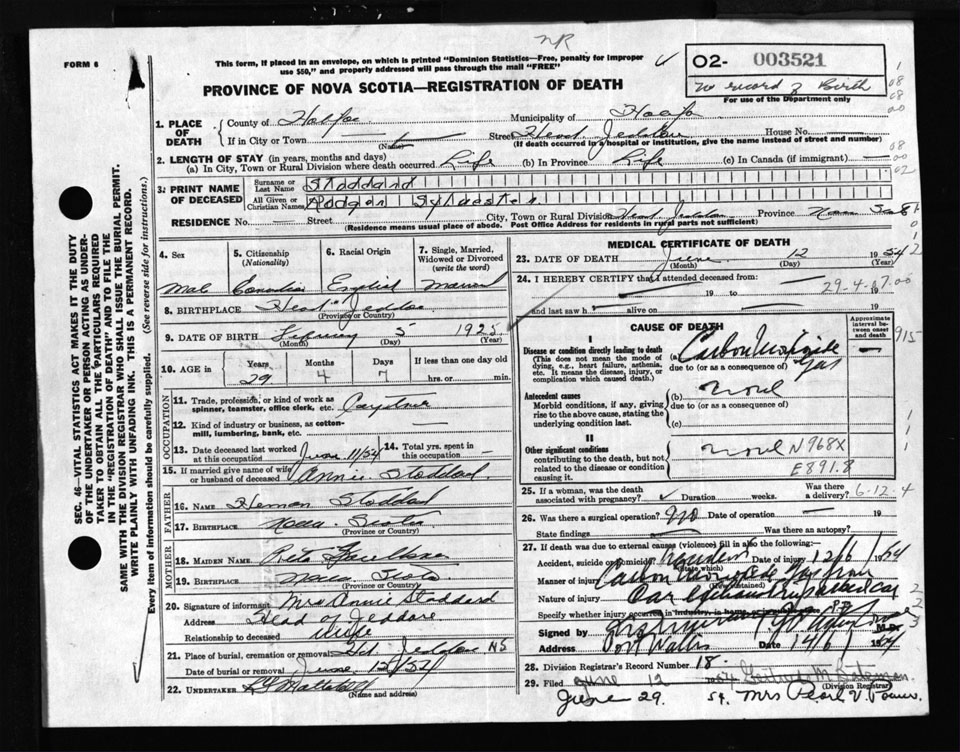 NR
FORM 6
This form, if placed in an envelope, on which is printed "Dominion Statistics—Free, penalty for improper
use $50," and properly addressed will pass through the mail "FREE"
O2- 003521
No record of Birth
For use of the Department only
PROVINCE OF NOVA SCOTIA—REGISTRATION OF DEATH
1. PLACE OF DEATH
County of Halifax Municipality of Halifax
If in City or Town (Name) Street Head Jeddore House No.
(If death occurred in a hospital or institution, give the name instead of street and number)
2. LENGTH OF STAY (in years, months and days)
(a) In City, Town or Rural Division where death occurred Life (b) In Province Life (c) In Canada (if immigrant) —
3. PRINT NAME OF DECEASED
Surname or Last Name Stoddard
All Given or Christian Names Rodger Sylvester
RESIDENCE No. Street City, Town or Rural Division Head Jeddore Province Nova
(Residence means usual place of abode. Post Office Address for residents in rural parts not sufficient)
4. Sex
5. Citizenship (Nationality)
6. Racial Origin
7. Single, Married, Widowed or Divorced (write the word)
Male Canadian English Married
8. BIRTHPLACE Head Jeddore
(Province or Country)
9. DATE OF BIRTH 5 1925
(Month) (Day) (Year)
10. AGE in Years Months Days If less than one day old
29 4 7 hrs. or min.
OCCUPATION
11. Trade, profession, or kind of work as
spinner, teamster, office clerk, etc.
12. Kind of industry or business, as cotton-
mill, lumbering, bank, etc.
13. Date deceased last worked at this occupation June 11/54
14. Total yrs. spent in this occupation
15. If married give name of wife or husband of deceased Annie Stoddard
FATHER
16. NAME Stoddard
17. BIRTHPLACE Nova Scotia
(Province or Country)
MOTHER
18. MAIDEN NAME Faulkner
19. BIRTHPLACE Nova Scotia
(Province or Country)
20. Signature of informant Mrs Annie Stoddard
Address Head of Jeddore
Relationship to deceased Wife
21. Place of burial, cremation or removal Jeddore NS
Date of burial or removal June 15/54
22. UNDERTAKER
(Name and address)
MEDICAL CERTIFICATE OF DEATH
23. DATE OF DEATH June 12 1954
(Month) (Day) (Year)
24. I HEREBY CERTIFY that I attended deceased from:
19 to 19
and last saw h alive on 19
29-4-7.00
CAUSE OF DEATH
Approximate interval between onset and death
I
Disease or condition directly leading to death
(This does not mean the mode of
dying, e.g., heart failure, asthenia,
etc. It means the disease, injury, or
complication which caused death.)
(a) Carbon Monoxide Gas
due to (or as a consequence of)
915
Antecedent causes
Morbid conditions, if any, giving
rise to the above cause, stating the
underlying condition last.
(b)
due to (or as a consequence of)
(c)
II
Other significant conditions
contributing to the death, but not
related to the disease or condition
causing it.
N968X
E891.8
25. If a woman, was the death associated with pregnancy? Duration weeks. Was there a delivery?
6-12-4
26. Was there a surgical operation? No Date of operation 19
State findings Was there an autopsy?
27. If death was due to external causes (violence) fill in also the following:—
Accident, suicide or homicide? Accident Date of injury 12/6 1954
(State which)
Manner of injury Carbon Monoxide
Nature of injury
Specify whether injury occurred in industry, in home, or in public place
Signed by
Address Port Wallis 14/6 1954
28. Division Registrar's Record Number 18
29. Filed June 12 1954
(Division Registrar)
June 29. 54. Mrs Pearl V.
SEC. 46—VITAL STATISTICS ACT MAKES IT THE DUTY
OF THE UNDERTAKER OR PERSON ACTING AS UNDER-
TAKER TO OBTAIN ALL THE PARTICULARS REQUIRED
IN THE "REGISTRATION OF DEATH" AND TO FILE THE
SAME WITH THE DIVISION REGISTRAR WHO SHALL ISSUE THE BURIAL PERMIT.
WRITE PLAINLY WITH UNFADING INK. THIS IS A PERMANENT RECORD.
Every item of information should be carefully supplied. (See reverse side for instructions.)